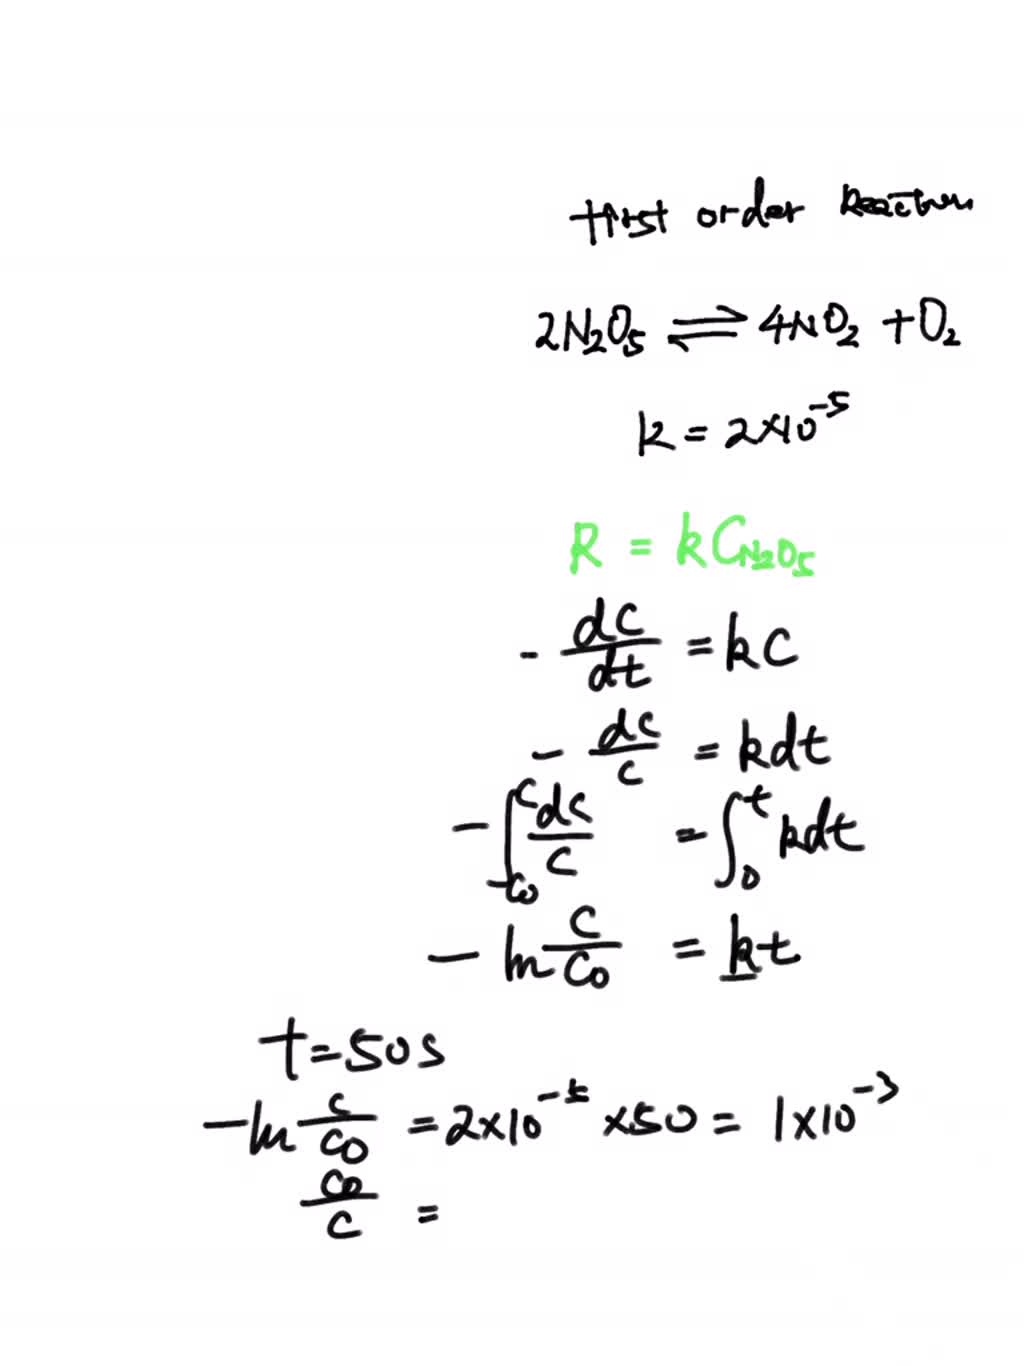 first order Reaction
2N₂O₅ ⇌ 4NO₂ + O₂
k = 2×10⁻⁵
R = kC_{N₂O₅}
- dc/dt = kC
- dc/c = kdt
- ∫_{C₀}^{C} dc/c = ∫₀ᵗ kdt
- ln C/C₀ = kt
t = 50s
- ln C/C₀ = 2×10⁻⁵ ×50 = 1×10⁻³
C₀/C =